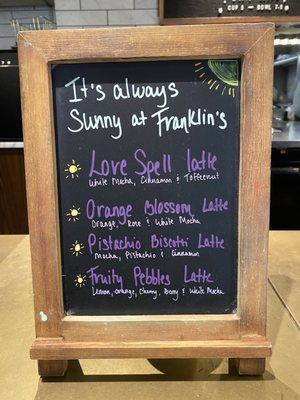 CUP 6 - BOWL 7.5
It's always
Sunny at Franklin's
Love Spell latte
White Mocha, Cinnamon & Toffeenut
Orange Blossom Latte
Orange, Rose & White Mocha
Pistachio Biscotti Latte
Mocha, Pistachio & Cinnamon
Fruity Pebbles Latte
Lemon, Orange, Cherry, Berry & White Mocha